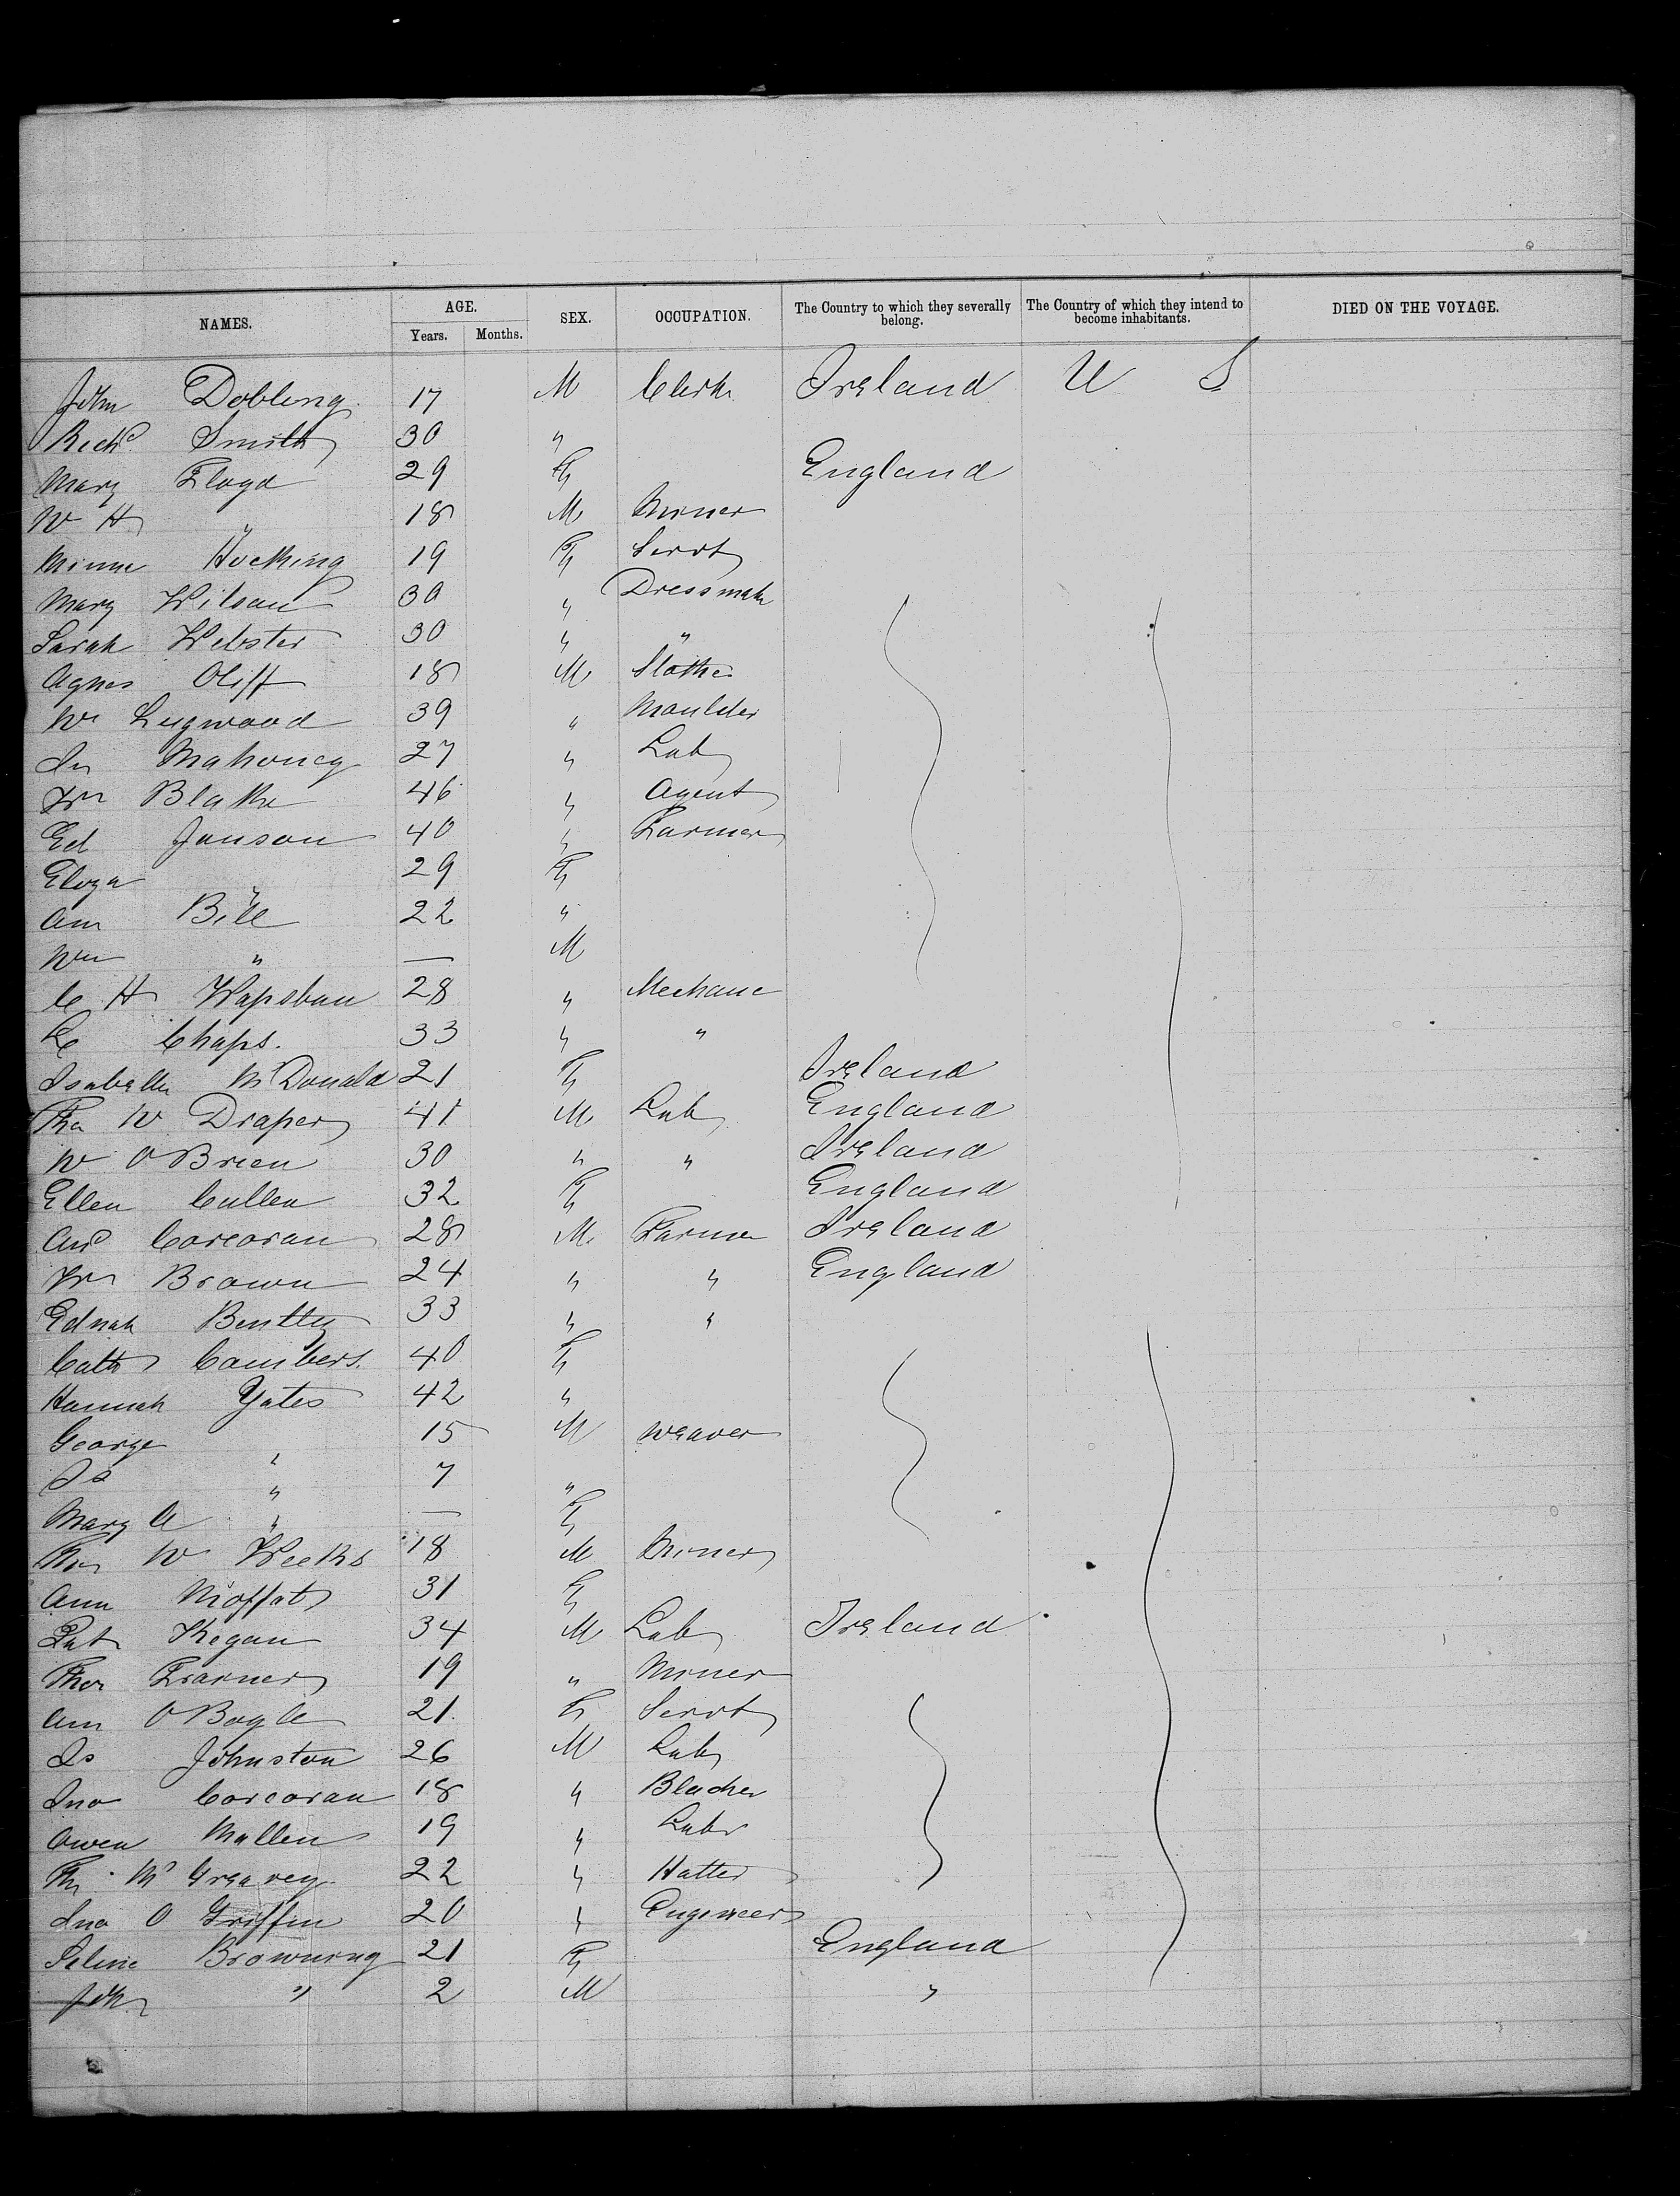 NAMES. AGE. Years. Months. SEX. OCCUPATION. The Country to which they severally belong. The Country of which they intend to become inhabitants. DIED ON THE VOYAGE.
John Dobling 17 M Clerk Ireland U S
Richd Smith 30 "
Mary Floyd 29 F England
W H " 18 M Miner
Minne Hocking 19 F Servt
Mary Wilson 30 " Dressmak
Sarah Webster 30 " "
Agnes Oliff 18 M
Wm Lugwood 39 " Moulder
Mahoney 27 " Lab
Wm Blake 46 " Agent
Ed Janson 40 " Farmer
Eloza " 29 F
Ann Bill 22 "
Wm " — M
C H Wapsban 28 " Mechanc
Chaps. 33 " "
Isabella McDonald 21 F Ireland
Tho W Draper 41 M Lab England
W OBrien 30 " " Ireland
Ellen Cullen 32 F England
And Corcoran 28 M Farmer Ireland
Wm Brown 24 " " England
Ednah Bentley 33 " "
Cath Cambers. 40 F
Hannah Yates 42 "
George " 15 M Weaver
Js " 7 "
Mary A " — F
Thos W Weeks 18 M Miner
Ann Moffat 31 F
Pat Kegan 34 M Lab Ireland
Thos 19 " Miner
Ann OBoyle 21. F Servt
Js Johnston 26 M Lab
Jno Corcoran 18 "
Owen Mullen 19 " Labr
Th McGreavey 22 " Hatter
Jno O Griffin 20 " Engineer
Selina Browning 21 F England
Jn " 2 M "